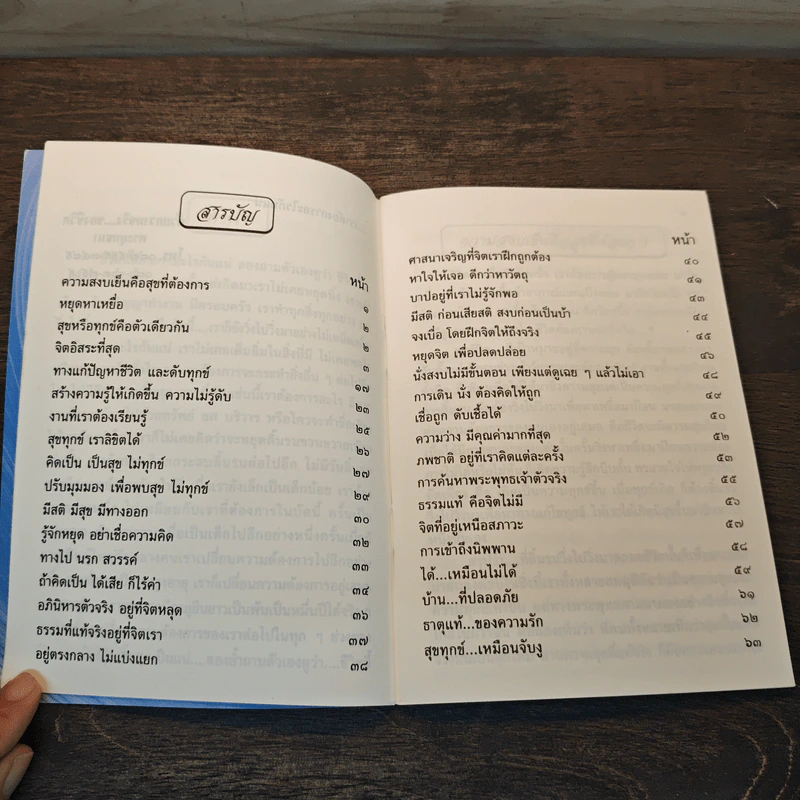 สารบัญ
หน้า
ความสงบเย็นคือสุขที่ต้องการ ๑
หยุดหาเหยื่อ ๒
สุขหรือทุกข์คือตัวเดียวกัน ๒
จิตอิสระที่สุด ๓
ทางแก้ปัญหาชีวิต และดับทุกข์ ๑๗
สร้างความรู้ให้เกิดขึ้น ความไม่รู้ดับ ๒๓
งานที่เราต้องเรียนรู้ ๒๕
สุขทุกข์ เราลิขิตได้ ๒๖
คิดเป็น เป็นสุข ไม่ทุกข์ ๒๗
ปรับมุมมอง เพื่อพบสุข ไม่ทุกข์ ๒๙
มีสติ มีสุข มีทางออก ๓๐
รู้จักหยุด อย่าเชื่อความคิด ๓๒
ทางไป นรก สวรรค์ ๓๓
ถ้าคิดเป็น ได้เสีย ก็ไร้ค่า ๓๔
อภินิหารตัวจริง อยู่ที่จิตหลุด ๓๖
ธรรมที่แท้จริงอยู่ที่จิตเรา ๓๗
อยู่ตรงกลาง ไม่แบ่งแยก ๓๘
หน้า
ศาสนาเจริญที่จิตเราฝึกถูกต้อง ๔๐
หาใจให้เจอ ดีกว่าหาวัตถุ ๔๑
บาปอยู่ที่เราไม่รู้จักพอ ๔๓
มีสติ ก่อนเสียสติ สงบก่อนเป็นบ้า ๔๔
จงเบื่อ โดยฝึกจิตให้ถึงจริง ๔๕
หยุดจิต เพื่อปลดปล่อย ๔๖
นั่งสงบไม่มีขั้นตอน เพียงแต่ดูเฉย ๆ แล้วไม่เอา ๔๘
การเดิน นั่ง ต้องคิดให้ถูก ๔๙
เชื่อถูก ดับเชื้อได้ ๕๐
ความว่าง มีคุณค่ามากที่สุด ๕๒
ภพชาติ อยู่ที่เราคิดแต่ละครั้ง ๕๓
การค้นหาพระพุทธเจ้าตัวจริง ๕๕
ธรรมแท้ คือจิตไม่มี ๕๖
จิตที่อยู่เหนือสภาวะ ๕๗
การเข้าถึงนิพพาน ๕๘
ได้...เหมือนไม่ได้ ๕๙
บ้าน...ที่ปลอดภัย ๖๑
ธาตุแท้...ของความรัก ๖๒
สุขทุกข์...เหมือนจับงู ๖๓